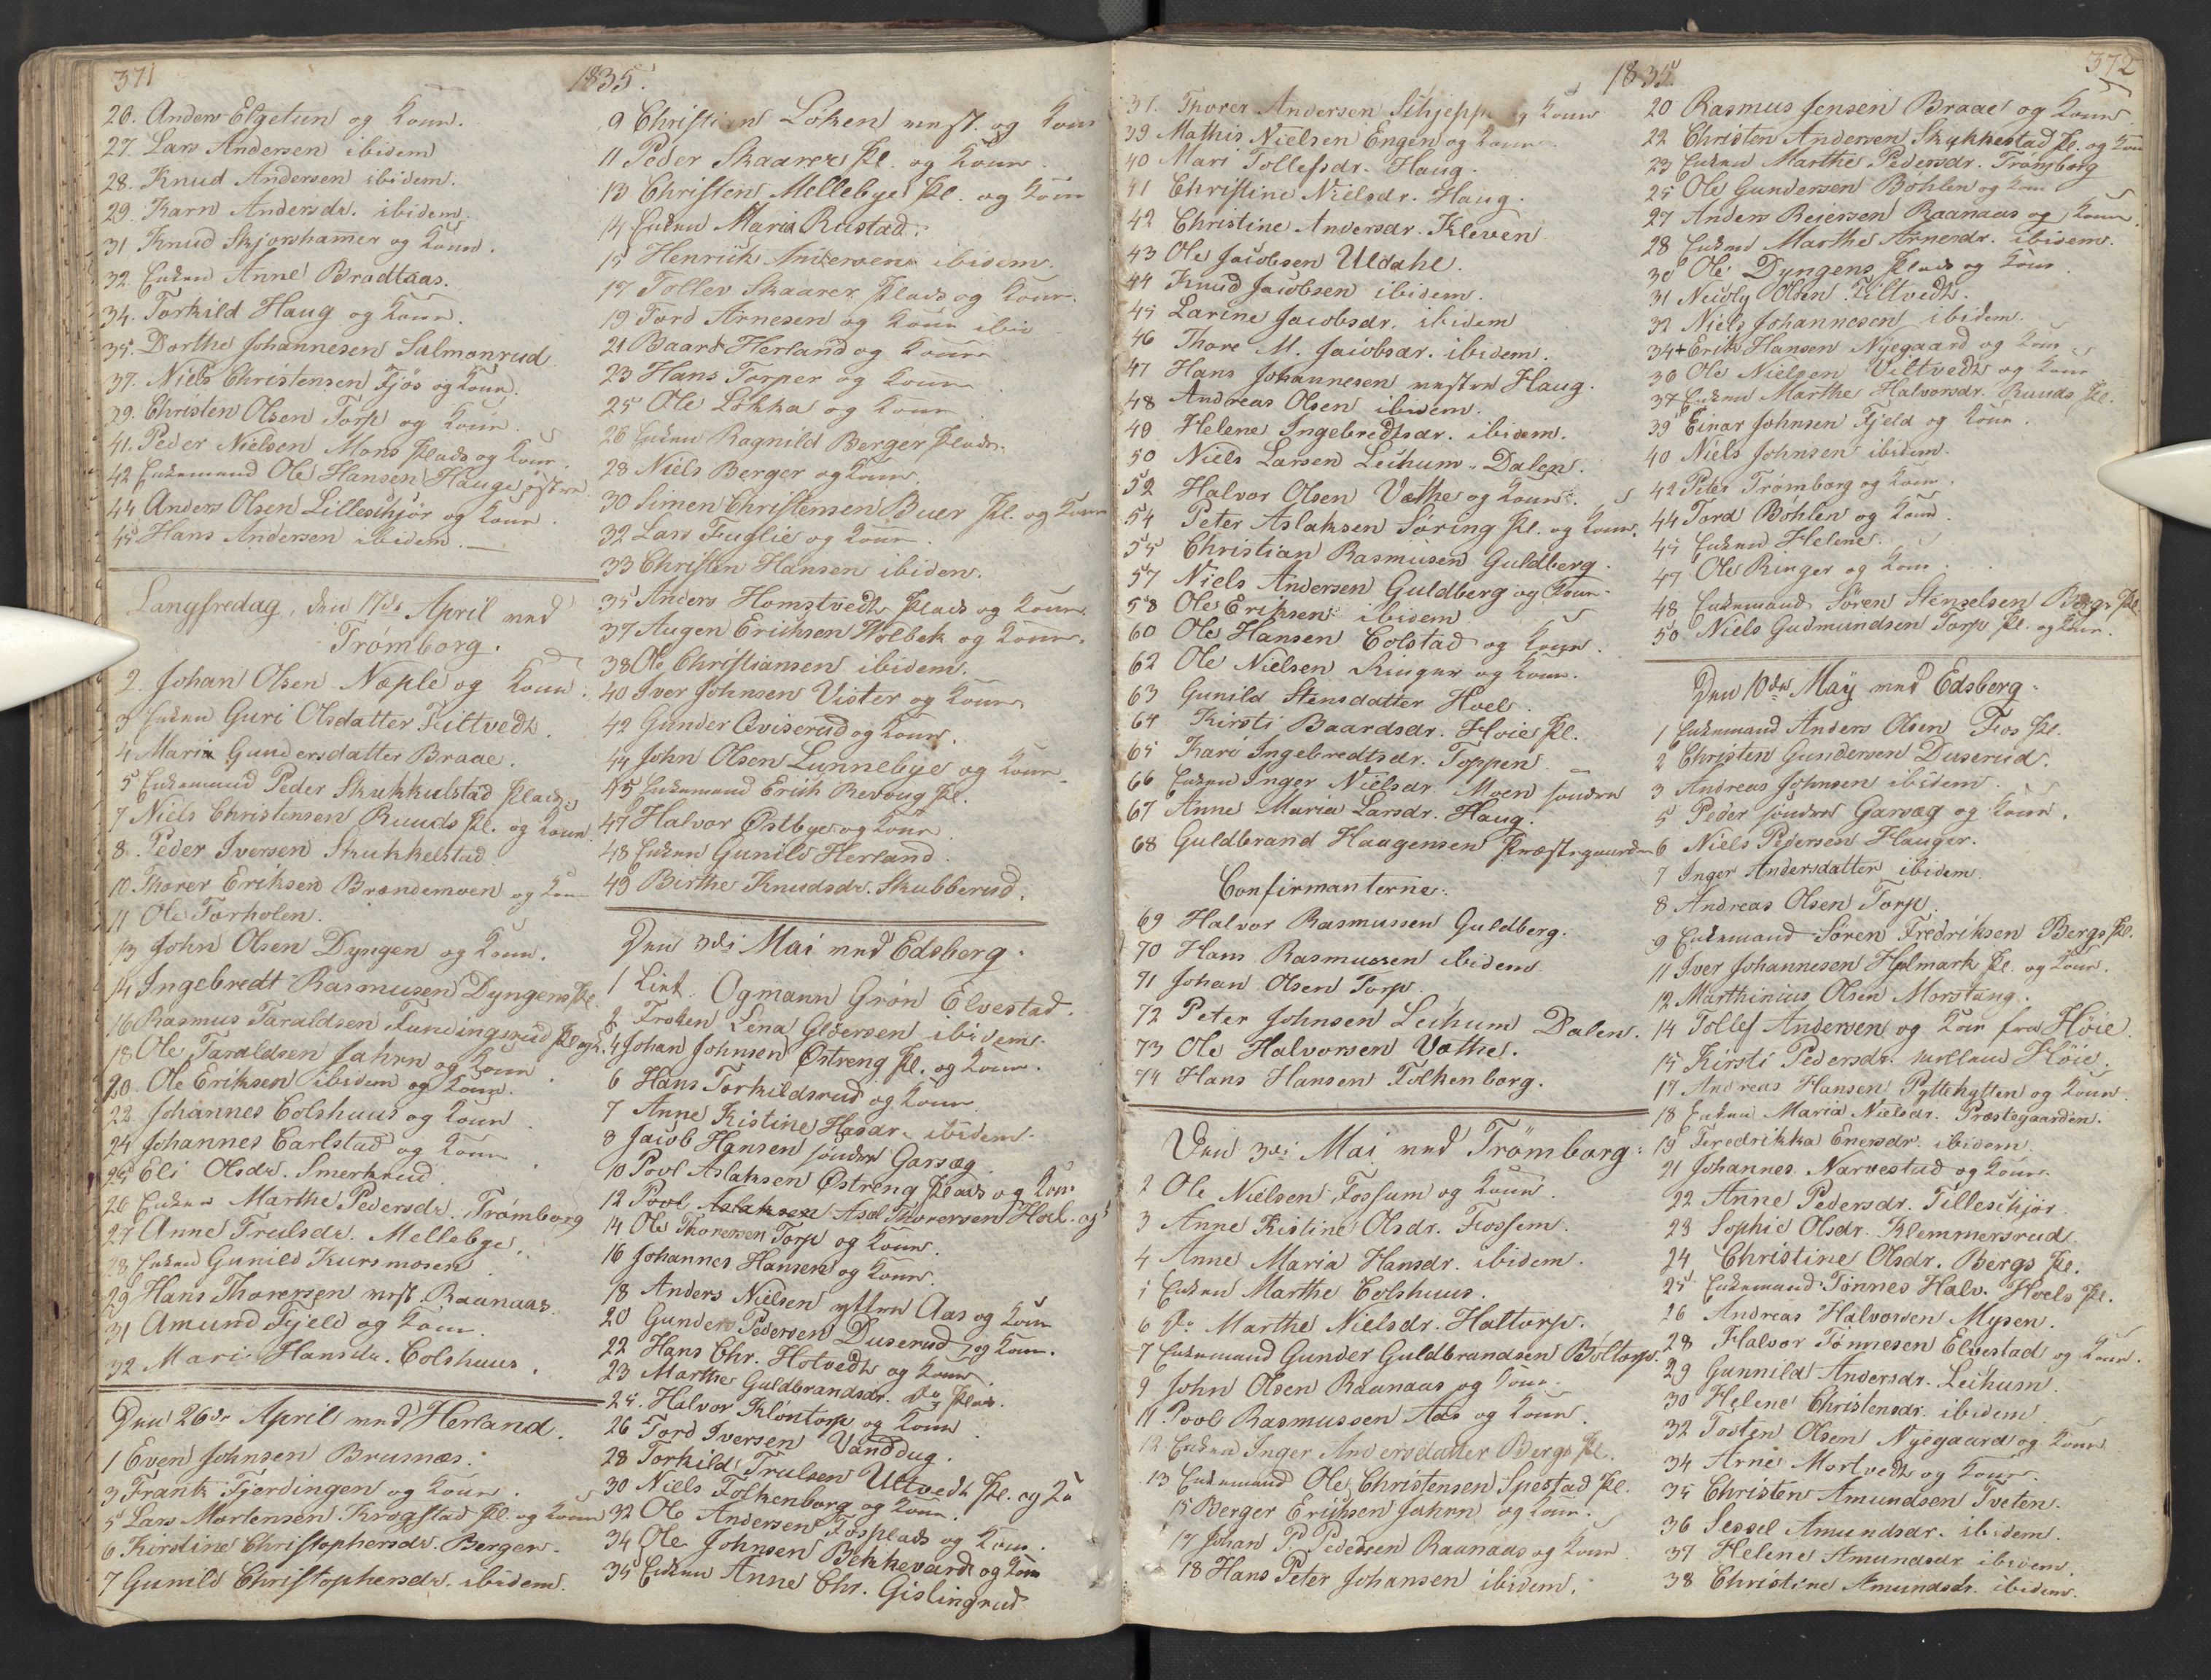 371
1835.
26. Anders Elgetun og Kone.
27. Lars Andersen ibidem
28. Knud Andersen ibidem.
29. Karn Andersdr. ibidem.
31 Knud Skjorshamer og Kone.
32. Enken Anne Bradtaas.
34. Torkild Haug og Kone.
35. Dorthe Johannesen Salmonrud
37. Niels Christensen Fjøs og Kone.
39. Christen Olsen Torp og Kone.
41. Peder Nielsen Mons Plads og Kone.
42 Enkemand Ole Hansen Hauge østre
44 Anders Olsen Lilleschjør og Kone.
45 Hans Andersen ibidem.
Langfredag, den 17de April ved
Trømborg.
2. Johan Olsen Næple og Kone.
3 Enken Guri Olsdatter Kiltvedt.
4 Maria Gundersdatter Braae.
5 Enkemand Peder Skukkulstad Plads
7 Niels Christensen Ruuds Pl. og Kone
8. Peder Iversen Skukkelstad
10 Thorer Eriksen Brændemoen og Kone
11 Ole Torholen.
13 John Olsen Dyngen og Kone.
14 Ingebredt Rasmusen Dyngens Pl.
16 Rasmus Taraldsen Funingsrud Pl og K.
18 Ole Taraldsen Jahrn og Kone
20. Ole Eriksen ibidem og Kone.
22 Johannes Colshuus og Kone
24 Johannes Carlstad og Kone
25 Eli Olsdr. Smerkrud.
26 Enken Marthe Pedersdr. Trømborg
27 Anne Trulsdr. Mellebye.
28 Enken Gunild Kursmosen
29 Hans Thoresen vest. Raanaas
31 Amund Fjeld og Kone.
32 Mari Hansdr. Colshuus.
Den 26de April ved Herland.
1 Even Johnsen Brusnæs.
3 Frank Fjerdingen og Kone.
5 Lars Mortensen Krogstad Pl. og Kone
6 Kirstine Christophersdr. Berger.
7 Gunild Christophersdr. ibidem.
9 Christian Løken vest. og Kone
11 Peder Skaarer Pl. og Kone.
13 Christen Mellebye Pl. og Kone
14 Enken Maria Rustad.
15 Henrick Andersen ibidem.
17 Tollev Skaarer Plads og Kone.
19 Tord Arnesen og Kone ibid
21 Baard Herland og Kone
23 Hans Torper og Kone
25 Ole Løkka og Kone
26 Enken Ragnild Berger Plads.
28 Niels Berger og Kone.
30 Simen Christensen Buer Pl. og Kone
32 Lars Fuglie og Kone.
33 Christen Hansen ibidem.
35 Anders Homstvedt Plads og Kone
37 Augen Erichsen Holbek og Kone.
38 Ole Christiansen ibidem.
40 Iver Johnsen Vister og Kone
42 Gunder Qviserud og Kone.
44 John Olsen Lunnebye og Kone.
45 Enkemand Erich Revoug Pl.
47 Halvor Østbye og Kone.
48 Enken Gunild Herland.
49 Berthe Knudsdr. Skubberud.
Den 3de Mai ved Edsberg.
1 Lieut. Ogmann Grøn Elvestad.
2 Frøken Lena Gløersen ibidem.
4 Johan Johnsen Østreng Pl. og Kone.
6 Hans Torkildsrud og Kone
7 Anne Kistine Hasdr. ibidem.
8 Jacob Hansen søndre Garsæg.
10 Povl Aslaksen Østreng Plads og Kone
12 Povl Aslaksen Asol Thoresen Hoel. og
14 Ole Thoresen Torp og Kone.
16 Johannes Hansen og Kone.
18 Anders Nielsen yttre Aas og Kone
20 Gunder Pedersen Duserud og Kone.
22 Hans Chr. Hotvedt og Kone
23 Marthe Guldbrandsdr. do Plads.
25. Halvor Kløntorp og Kone
26 Tord Iversen Vanddug.
28 Torkild Trulsen Ultvedt Pl. og Ko
30 Niels Folkenborg og Kone.
32 Ole Andersen Fosplads og Kone.
34 Ole Johnsen Bekkevard og Kone
35 Enken Anne Chr. Gislingrud
1835.
372
37. Thorer Andersen Schjepp og Kone
39 Mathis Nielsen Engen og Kone.
40 Mari Tollefsdr. Haug.
41 Christine Nielsdr. Haug.
42 Christine Andersdr. Kleven
43 Ole Jacobsen Uldahl.
44 Knud Jacobsen ibidem.
45 Larine Jacobsdr. ibidem
46 Thore M. Jacobsdr. ibidem.
47 Hans Johannesen vestre Haug.
48 Andreas Olsen ibidem.
49 Helene Ingebredtsdr. ibidem.
50 Niels Larsen Leikum Dalen.
52 Halvor Olsen Vathe og Kone.
54 Peter Aslaksen Søring Pl. og Kone.
55 Christian Rasmusen Guldberg.
57 Niels Andersen Guldberg og Kone.
58 Ole Eriksen ibidem
60 Ole Hansen Colstad og Kone.
62 Ole Nielsen Ringer og Kone.
63 Gunild Stensdatter Hoel.
64 Kirsti Baardsdr. Hoie Pl.
65 Kari Ingebredtsdr. Toppen
66 Enken Inger Nielsdr. Moen søndre
67 Anne Maria Larsdr. Haug.
68 Guldbrand Haagensen Præstegaarden
Confirmanterne.
69 Halvor Rasmussen Guldberg.
70 Hans Rasmussen ibidem
71 Johan Olsen Torp.
72 Peter Johnsen Leikum Dalen.
73 Ole Halvorsen Vathe.
74 Hans Hansen Folkenborg.
Den 3de Mai ved Trømborg.
2 Ole Nielsen Fossum og Kone.
3 Anne Kistine Olsdr. Fossem.
4 Anne Maria Hansdr. ibidem.
5 Enken Marthe Colshuus.
6 do Marthe Nielsdr. Haltorp.
7 Enkemand Gunder Guldbrandsen Bøltorp.
9 John Olsen Raanaas og Kone.
11 Povl Rasmussen Aas og Kone.
12 Enken Inger Andersdatter Bergs Pl.
13 Enkemand Ole Christensen Spestad Pl.
15 Berger Erichsen Jahrn og Kone.
17 Johan P. Pedersen Raanaas og Kone
18 Hans Peter Johansen ibidem.
20 Rasmus Jensen Braae og Kone
22 Christen Andersen Skukkestad Pl. og Kone
23 Enken Marthe Pedersdr. Trømborg
25 Ole Gundersen Bøhlen og Kone
27 Anders Reiersen Raanaas og Kone.
28 Enken Marthe Arnesdr. ibidem.
30 Ole Dyngens Plads og Kone.
31 Nicoly Olsen Kiltvedt.
32 Niels Johannesen ibidem.
34+ Erik Hansen Nyegaard og Kone
36 Ole Nielsen Viltvedt og Kone
37 Enken Marthe Halvorsdr. Ruuds Pl.
39 Einar Johnsen Fjeld og Kone.
40 Niels Johnsen ibidem.
42 Peter Trømborg og Kone.
44 Tord Bøhlen og Kone.
45 Enken Helene.
47 Ole Ringer og Kone.
48 Enkemand Søren Stenselsen Bergs Pl.
50 Niels Gudmundsen Torp Pl. og Kone.
Den 10de Maÿ ved Edsberg.
1 Enkemand Anders Olsen Fos Pl.
2 Christen Gundersen Duserud.
3 Andreas Johnsen ibidem.
5 Peder søndre Garsæg og Kone.
6 Niels Pedersen Hauger.
7 Inger Andersdatter ibidem.
8 Andreas Olsen Torp.
9 Enkemand Søren Fredriksen Bergs Pl.
11 Iver Johannesen Holmark Pl. og Kone.
12 Marthinius Olsen Morstang.
14 Tollef Andersen og Kone fra Høie
15 Kirsti Pedersdr. mellem Høie.
17 Andreas Hansen Pyttehytten og Kone
18 Enken Maria Nielsdr. Præstegaarden.
19 Fredrikka Enersdr. ibidem.
21 Johannes Narvestad og Kone.
22 Anne Pedersdr. Tilleschjør
23 Sophie Olsdr. Klemmersrud
24 Christine Olsdr. Bergs Pl.
25 Enkemand Tønnes Halv. Hoels Pl.
26 Andreas Halvorsen Mysen.
28 Halvor Tønnesen Elvestad og Kone.
29 Gunnild Andersdr. Leikum
30 Helene Christensdr. ibidem
32 Tosten Olsen Nyegaard og Kone
34 Arne Mortvedt og Kone.
35 Christen Amundsen Tveten.
36 Sessel Amundsdr. ibidem.
37 Helene Amundsdr ibidem.
38 Christine Amundsdr. ibidem.